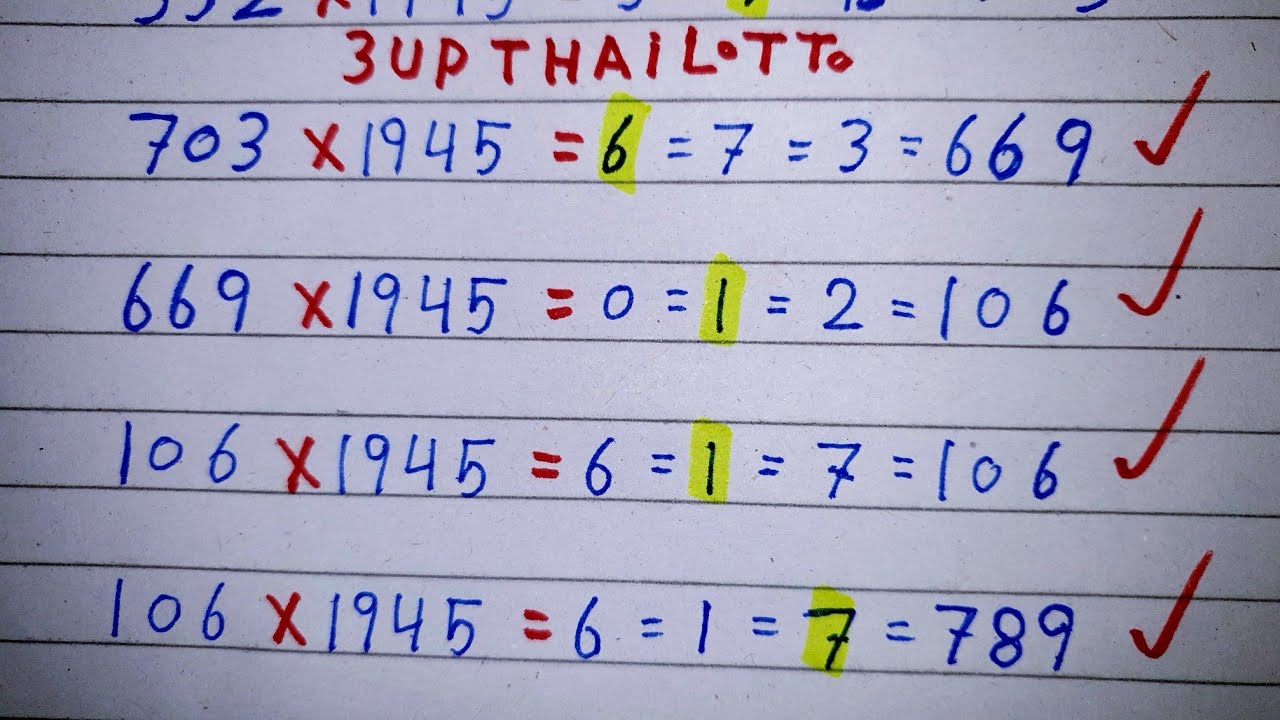 3UP THAI LOTTO
703 X 1945 = 6 = 7 = 3 = 669 ✓
669 X 1945 = 0 = 1 = 2 = 106 ✓
106 X 1945 = 6 = 1 = 7 = 106 ✓
106 X 1945 = 6 = 1 = 7 = 789 ✓